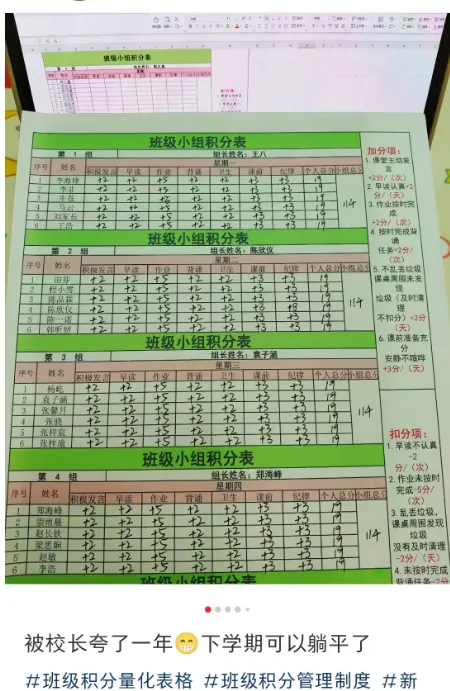 班级小组积分表
班级小组积分表
第 1 组 组长姓名：王八
星期一
序号 姓名 积极发言 早读 作业 背诵 卫生 课前 纪律 个人总分 小组总分
1 李海锋 +2 +2 +5 +2 +2 +3 +3 19
2 +2 +2 +5 +2 +2 +3 +3 19
3 +2 +2 +5 +2 +2 +3 +3 19 114
4 马云 +2 +2 +5 +2 +2 +3 +3 19
5 刘家长 +2 +2 +5 +2 +2 +3 +3 19
6 +2 +2 +5 +2 +2 +3 +3 19
班级小组积分表
第 2 组 组长姓名：陈欣仪
星期二
序号 姓名 积极发言 早读 作业 背诵 卫生 课前 纪律 个人总分 小组总分
1 田芬 +2 +2 +5 +2 +2 +3 +3 19
2 程小雪 +2 +2 +5 +2 +2 +3 +3 19
3 陈品霖 +2 +2 +5 +2 +2 +3 +3 19 114
4 陈欣仪 +2 +2 +5 +2 +2 +3 +3 19
5 陈一诺 +2 +2 +5 +2 +2 +3 +3 19
6 韩昕妍 +2 +2 +5 +2 +2 +3 +3 19
班级小组积分表
第 3 组 组长姓名：袁子涵
星期三
序号 姓名 积极发言 早读 作业 背诵 卫生 课前 纪律 个人总分 小组总分
1 杨屹 +2 +2 +5 +2 +2 +3 +3 19
2 袁子涵 +2 +2 +5 +2 +2 +3 +3 19
3 张馨月 +2 +2 +5 +2 +2 +3 +3 19 114
4 +2 +2 +5 +2 +2 +3 +3 19
5 张梓宸 +2 +2 +5 +2 +2 +3 +3 19
6 张梓瑜 +2 +2 +5 +2 +2 +3 +3 19
班级小组积分表
第 4 组 组长姓名：郑海峰
星期四
序号 姓名 积极发言 早读 作业 背诵 卫生 课前 纪律 个人总分 小组总分
1 郑海峰 +2 +2 +5 +2 +2 +3 +3 19
2 +2 +2 +5 +2 +2 +3 +3 19
3 赵长钦 +2 +2 +5 +2 +2 +3 +3 19 114
4 梁思娴 +2 +2 +5 +2 +2 +3 +3 19
5 赵敏 +2 +2 +5 +2 +2 +3 +3 19
6 李浩 +2 +2 +5 +2 +2 +3 +3 19
班级小组积分表
加分项：
1. 课堂主动发
言
+2分/（次）
2. 早读认真+2
分/（天）
3. 作业按时完
成
+2分/（次）
4. 按时完成背
诵
任务+2分/
（次）
5. 不乱丢垃圾
课桌周围未发
现
垃圾（及时清
理
不扣分）+2分
（天）
6. 课前准备充
分
安静不喧哗
+3分/（天）
扣分项：
1. 早读不认真
-2
分/（次）
2. 作业未按时
完成-5分/
（次）
3. 乱丢垃圾，
课桌周围发现
垃圾
没有及时清理
-2分/（天）
4. 未按时完成
背诵任务-2分
被校长夸了一年😁下学期可以躺平了
#班级积分量化表格 #班级积分管理制度 #新